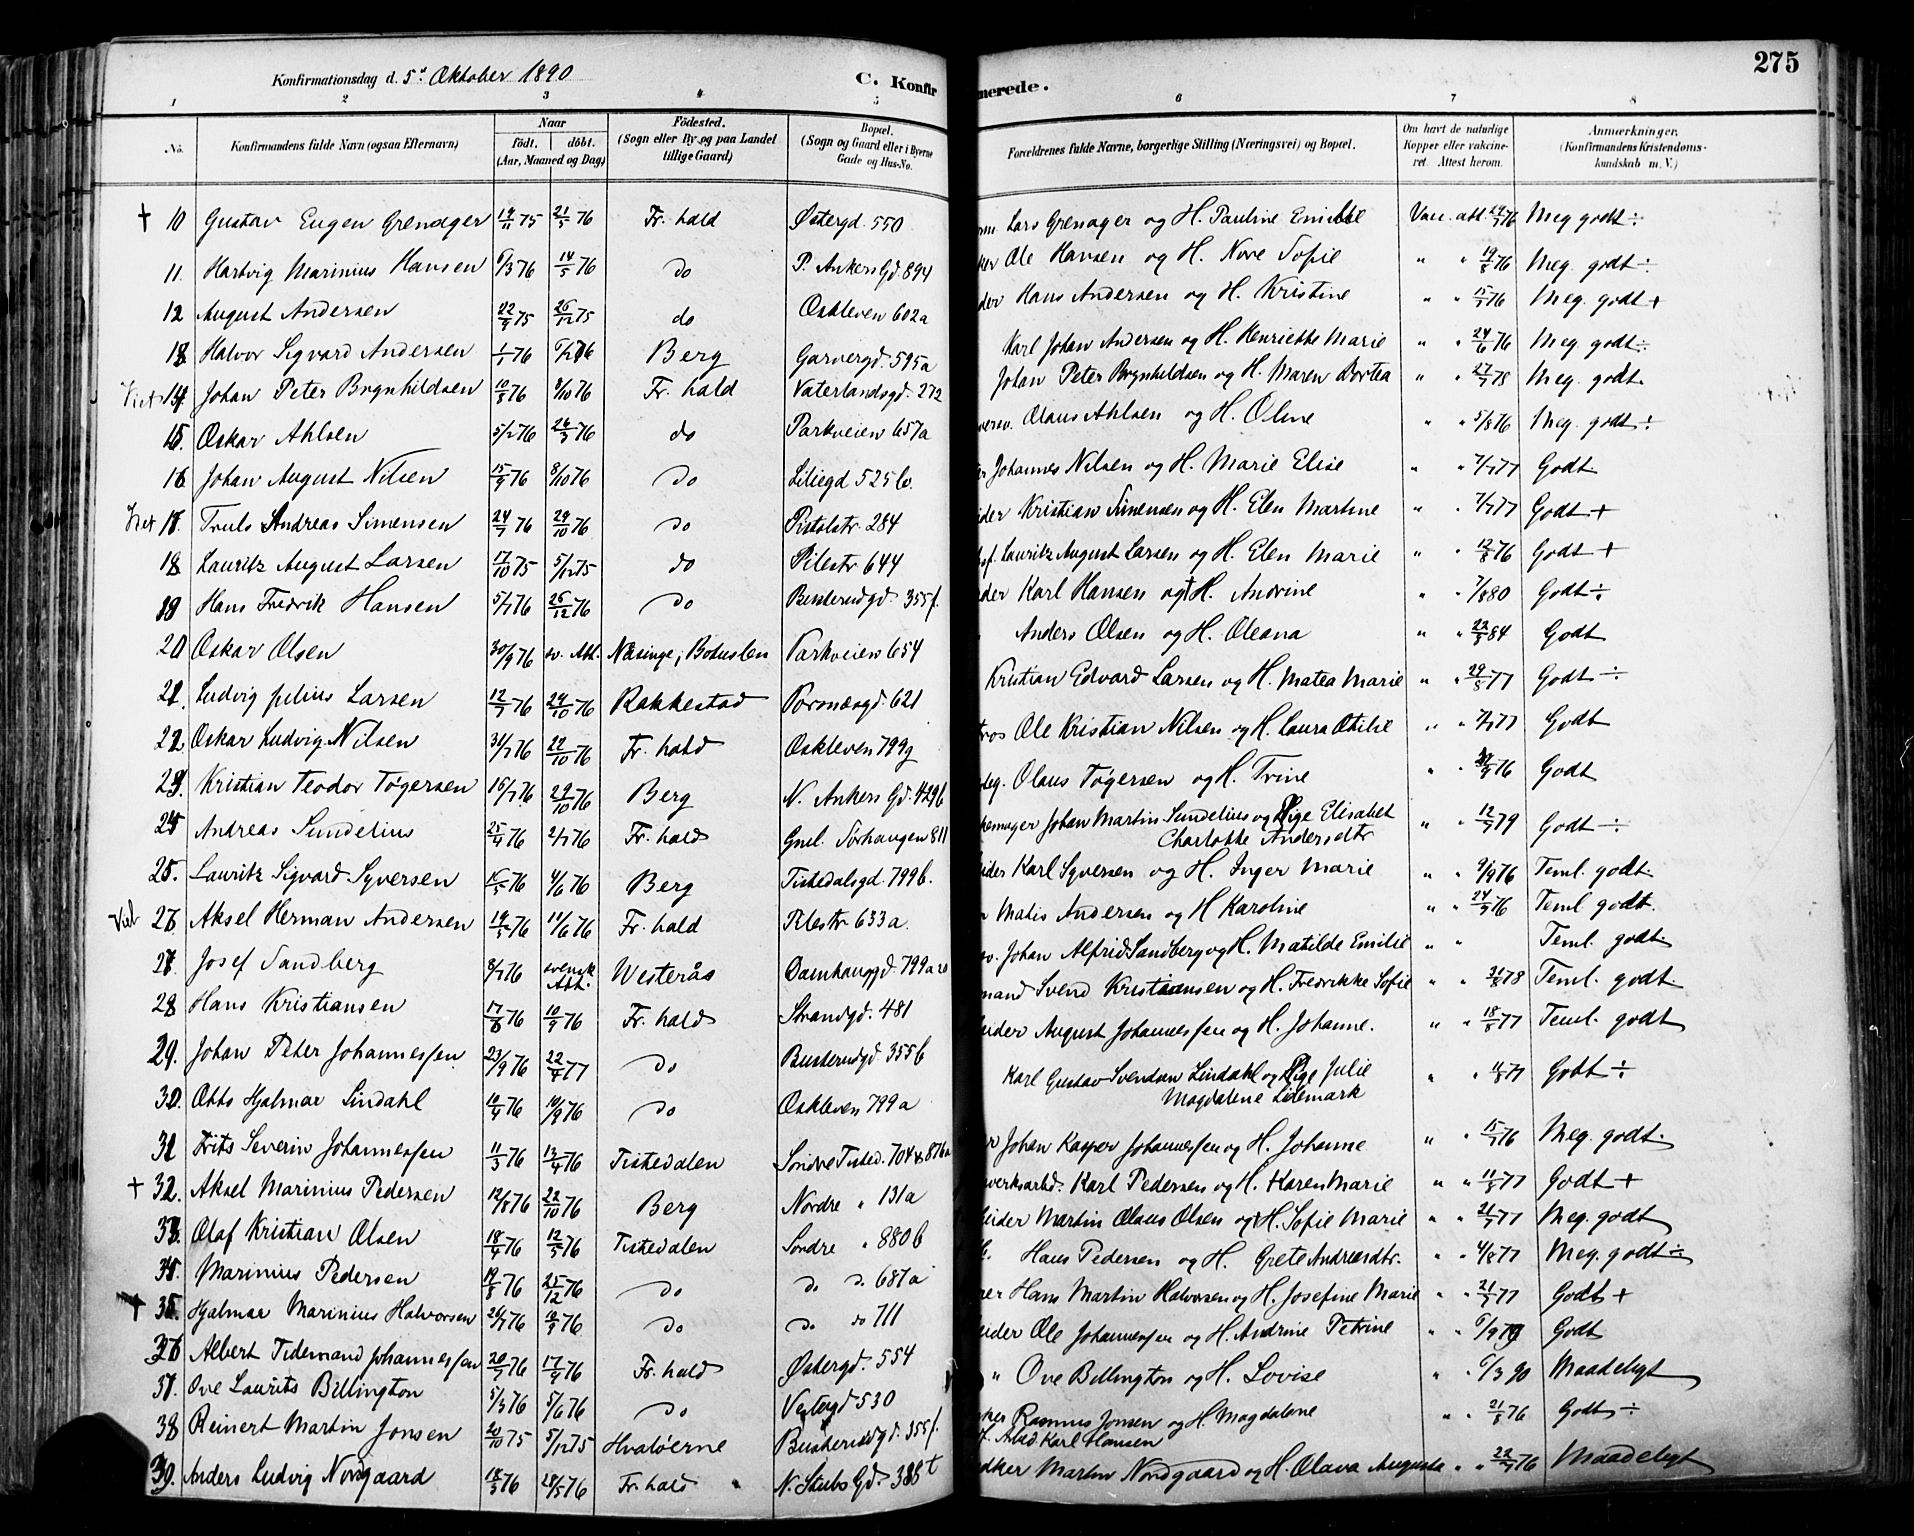 275
Konfirmationsdag d. 5te Oktober 1890 C. Konfirmerede.
1 2 3 4 5 6 7 8
No. Konfirmandens fulde Navn (ogsaa Efternavn) Naar Födt. döbt. (Aar, Maaned og Dag) Födested. (Sogn eller By og paa Landet tillige Gaard) Bopæl. (Sogn og Gaard eller i Byerne Gade og Hus-No. Forældrenes fulde Navne, borgerlige Stilling (Næringsvei) og Bopæl. Om havt de naturlige Kopper eller vakcineret. Attest herom. Anmærkninger. (Konfirmandens Kristendomskundskab m. V.)
† 10 Gustav Eugen Grenager 19/11 75 21/5 76 Fr. hald Østergd. 550 Lars Grenager og H. Pauline Emilie Vacc. att. 76 Meg godt ÷
11. Hartvig Marinius Hansen 6/3 76 14/5 76 do P. Ankers Gd. 894 Ole Hansen og H. Nove Sofie " " 19/8 76 Meg. godt ÷
12 August Andersen 22/9 75 26/12 75 do Oskleven 602a Hans Andersen og H. Kristine " " 15/7 76 Meg. godt +
13 Halvor Sigvard Andersen 1/1 76 76 Berg Garvergd. 595a Karl Johan Andersen og H. Henriette Marie " " 24/6 76 Meg godt ÷
14. Johan Peter Brynhildsen 10/8 76 8/10 76 Fr. hald Vaterlandsgd. 272 Johan Peter Brynhildsen og H. Maren Dortea " " 27/7 78 Meg. godt.
15 Oskar Ahlsen 5/2 76 26/3 76 do Parkveien 657a Olaus Ahlsen og H. Oline " " 5/8 76 Meg. godt ÷
16 Johan August Nilsen 15/9 76 8/10 76 do Liliegd 525b. Johannes Nilsen og H. Marie Elise " " 7/7 77 Godt.
17. Truls Andreas Simensen 24/7 76 29/10 76 do Pistolstr. 284 Kristian Simensen og H. Elen Martine " " 7/7 77 Godt +
18 Lauritz August Larsen 17/10 75 5/12 75 do Pilestr 644 Lauritz August Larsen og H. Elen Marie " " 12/8 76 Godt +
19 Hans Fredrik Hansen 5/7 76 26/12 76 do Busterudgd. 355f. Karl Hansen og † H. Andrine " " 7/8 80 Godt ÷
20 Oskar Olsen 30/9 76 sv. Att. Næsinge, Bohuslen Parkveien 654 Anders Olsen og H. Oleana " " 22/8 84 Godt
21. Ludvig Julius Larsen 12/7 76 24/10 76 Rakkestad 621 Kristian Edvard Larsen og H. Matea Marie " " 29/8 77 Godt ÷
22 Oskar Ludvig Nilsen 31/7 76 22/10 76 Fr. hald Oskleven 799g Ole Kristian Nilsen og H. Laura Otilie " " 7/7 77 Godt
23. Kristian Teodor Tøgersen 16/7 76 29/10 76 Berg N. Ankers Gd. 429b Olaus Tøgersen og H. Trine " " 76 Godt
24 Andreas Sundelius 25/4 76 2/7 76 Fr. hald Gml. Torhaugen 811 Johan Martin Sundelius og Pige Elisabet " " 12/7 79 Godt ÷
Charlotte Andersdtr
25. Lauritz Sigvard Syversen 16/5 76 4/6 76 Berg Tistedalsgd. 799b. Karl Syversen og H. Inger Marie " " 9/9 76 Teml. godt.
26 Aksel Herman Andersen 19/3 76 11/6 76 Fr. hald Pilestr 633a. Matis Andersen og H Karoline " " 24/9 76 Teml godt.
27. Josef Sandberg 8/7 76 svensk Att. Westerås Damhauggd. 799 Johan Alfrid Sandberg og H. Matilde Emilie " " Teml. godt.
28 Hans Kristiansen 17/6 76 10/9 76 Fr. hald Strandgd. 481 Svend Kristiansen og H. Fredrikke Sofie " " 31/8 78 Teml. godt.
29. Johan Peter Johannessen 23/9 76 22/4 77 do Busterudgd. 355b August Johannessen og H. Johanne. " " 18/8 77 Teml. godt
30. Otto Hjalmar Lindahl 19/4 76 10/9 76 do Oskleven 799a Karl Gustav Svendsen Lindahl og Pige Julie " " 77 Godt ÷
Magdalene Lidemark
31 Frits Severin Johannessen 11/3 76 13/4 76 Tistedalen Søndre Tisted. 704 876 Johan Kasper Johannessen og H. Johanne " " 15/7 76 Meg. godt.
† 32. Aksel Marinius Pedersen 12/8 76 22/10 76 Berg Nordre " 131a Karl Pedersen og H. Karen Marie " " 11/8 77 Godt +
33. Olaf Kristian Olsen 18/4 76 12/5 76 Tistedalen Søndre " 880b Martin Olaus Olsen og H. Sofie Marie " " 21/7 77 Meg. godt
34. Marinius Pedersen 19/8 76 25/12 76 do do do 687a Hans Pedersen og H. Grete Andræsdtr. " " 4/8 77 Meg. godt ÷
† 35. Hjalmar Marinius Halvorsen 24/7 76 10/9 76 do do do 711 Hans Martin Halvorsen og H. Josefine Marie " " 21/7 77 Godt +
36 Albert Tidemand Johannessen 20/7 76 17/9 76 Fr. hald Østergd. 554 Ole Johannessen og H. Andrine Petrine " " Godt
37. Ove Laurits Billington 5/3 76 5/6 76 do Vestergd 530 " Ove Billington og H. Lovise " " 6/3 90 Maadeligt
38 Reinert Martin Jonsen 20/10 75 5/12 75 Hvaløerne Busterudgd. 355f. Rasmus Jonsen og H. Magdalene " " 21/8 76 Godt ÷
Karl Hansen
39. Anders Ludvig Nordgaard 18/3 76 28/5 76 Fr. hald N. Stubs Gd. 386 Martin Nordgaard og H. Olava Augusta " " 22/7 76 Maadeligt